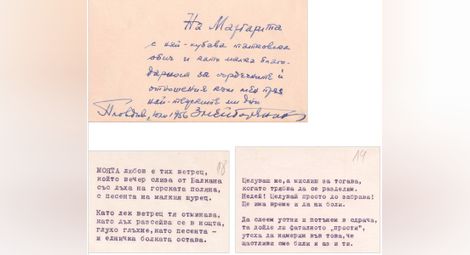 На Маргарита
с най-хубава татковска
обич и като малка благо-
дарност за сърдечните ѝ
отношения към мен през
най-тежките ми дни
Пловдив, 1956
18
МОЯТА любов е тих ветрец,
който вечер слиза от Балкана
със лъха на горската поляна,
с песента на малкия щурец.
Като лех ветрец тя отминава,
като лъх разсейва се в нощта,
глухо глъхне, като песента –
и едничка болката остава.
19
Целуваш ме, а мислиш за тогава,
когато трябва да се разделим.
Недей! Целувай просто до забрава!
Ще има време и да ни боли.
Да слеем устни и потънем в здрача,
та дойде ли фаталното „прости",
утеха да намерим във това, че
щастливи сме били и аз и ти.